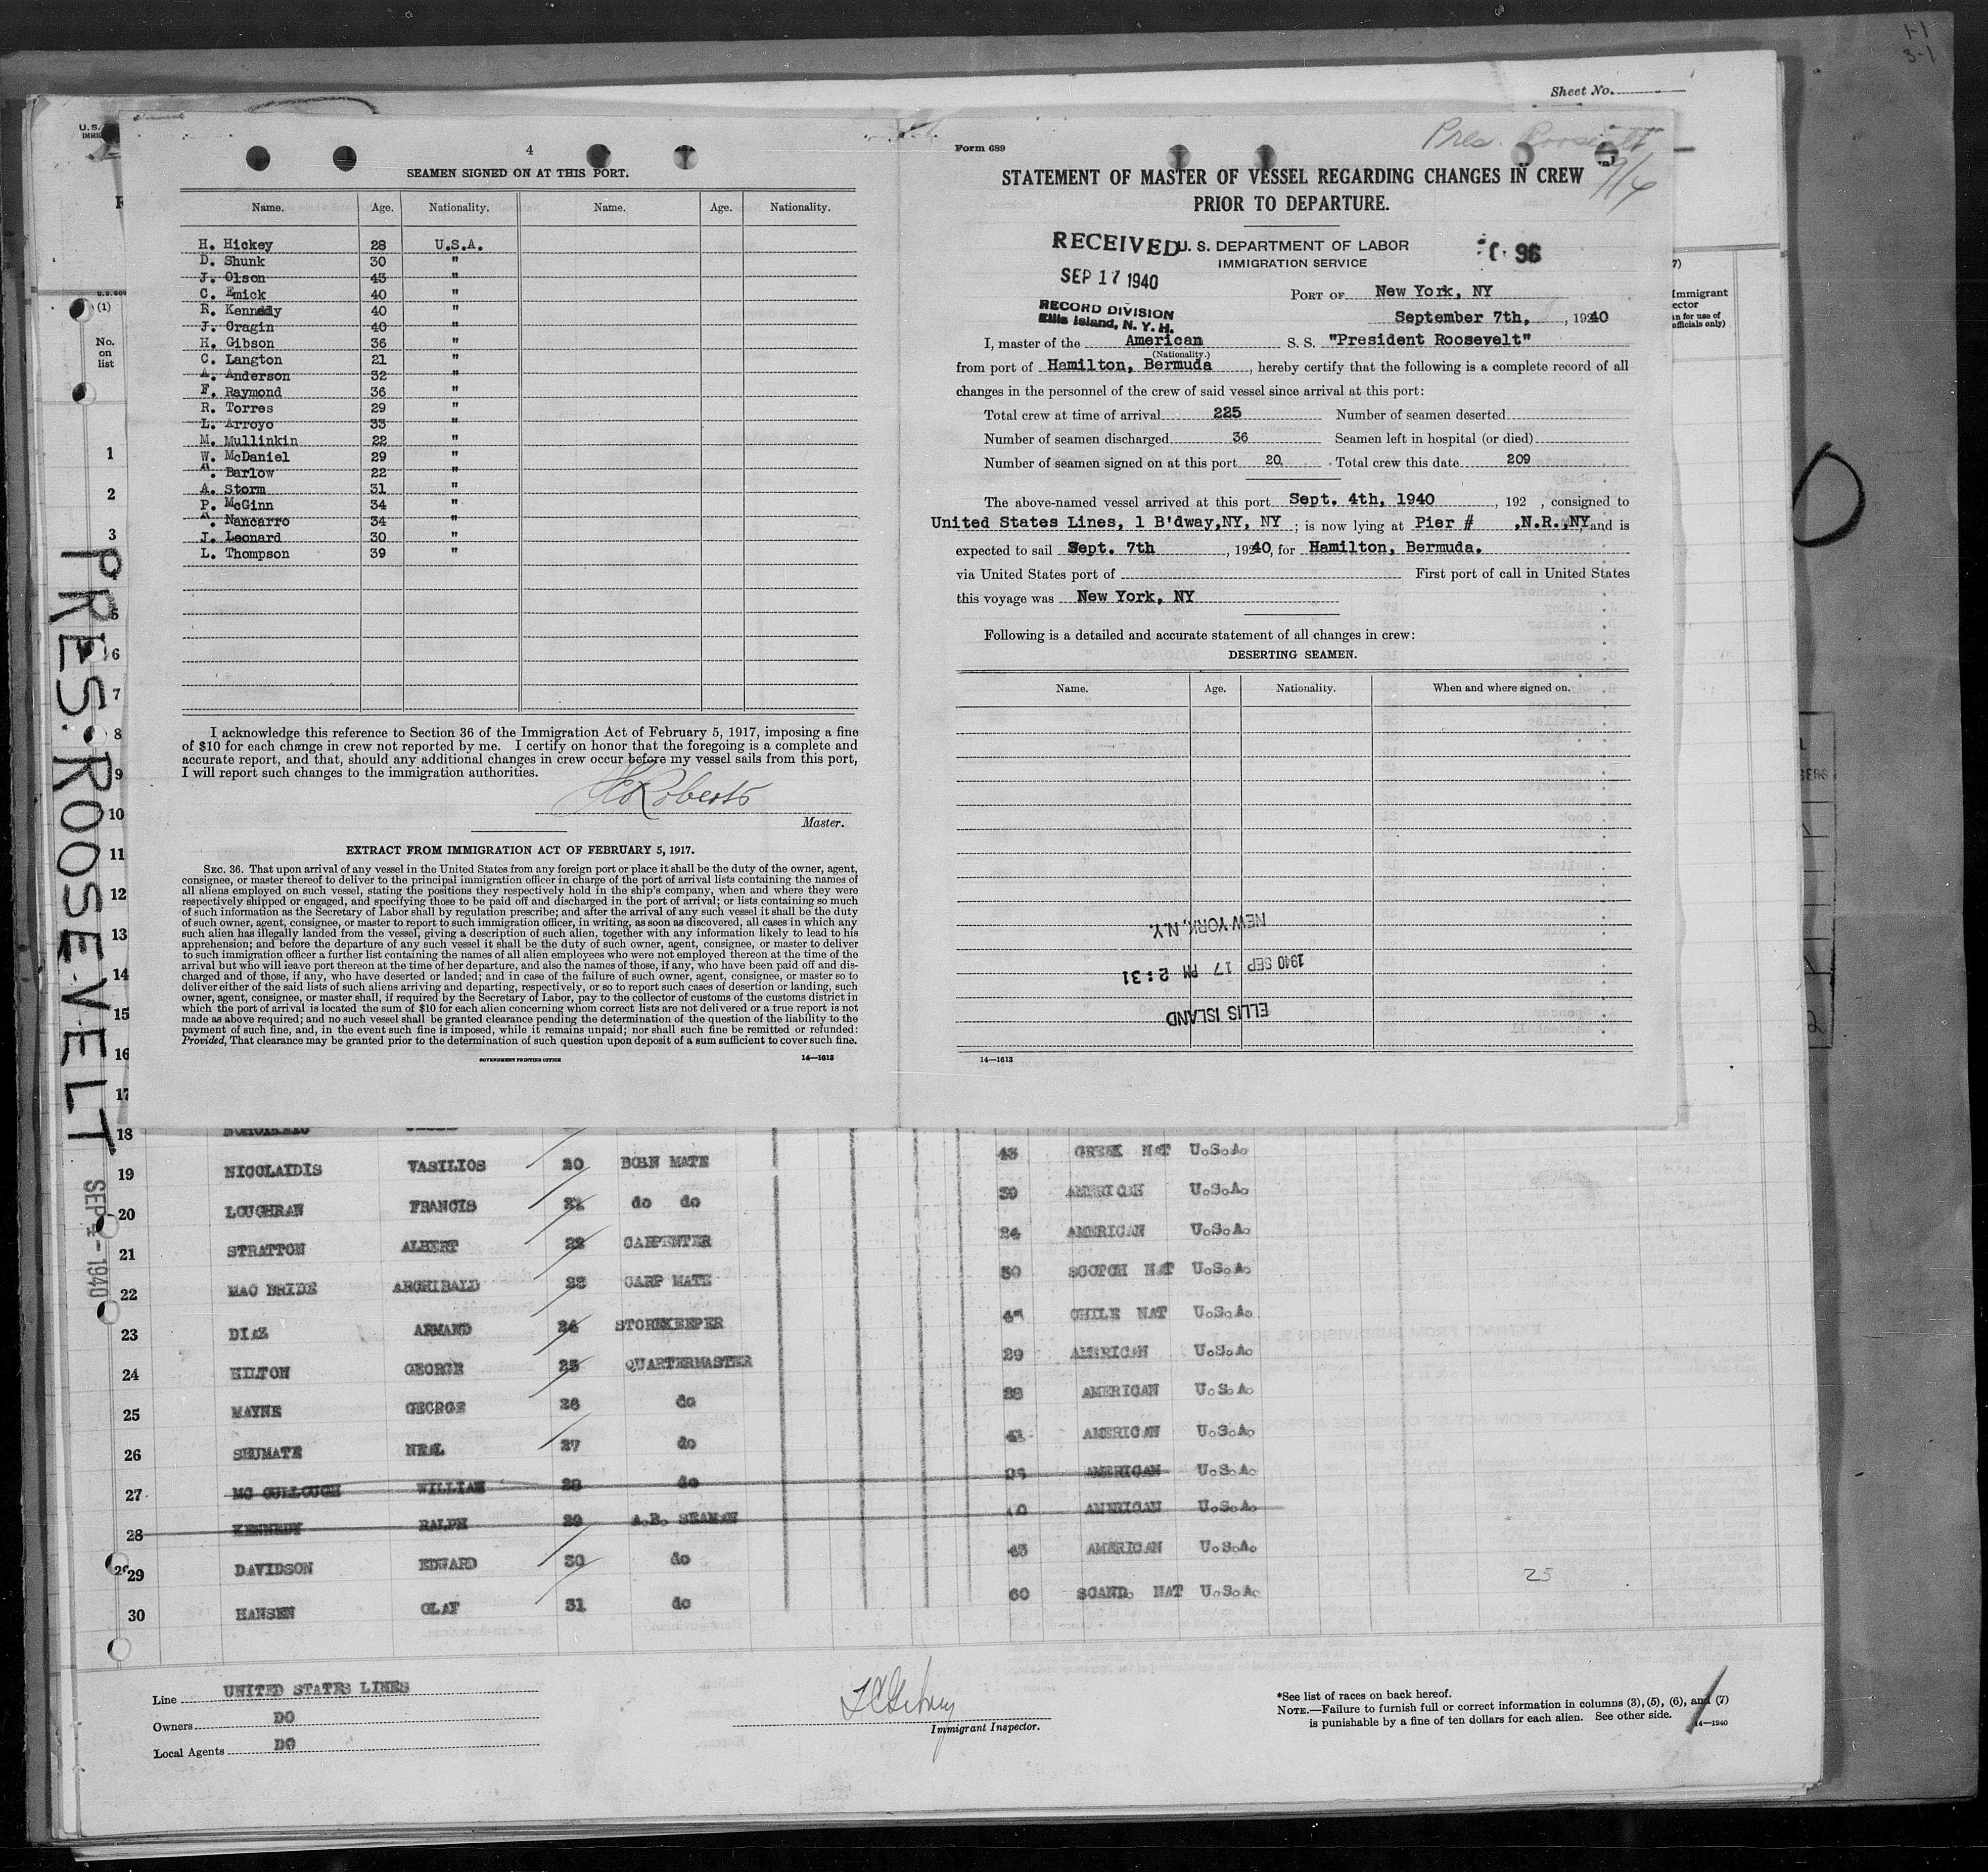 1-1
3-1
Sheet No.
4
SEAMEN SIGNED ON AT THIS PORT.
Name. Age. Nationality. Name. Age. Nationality.
H. Hickey 28 U.S.A.
D. Shunk 30 "
J. Olson 45 "
C. Emick 40 "
R. Kennedy 40 "
J. Cragin 40 "
H. Gibson 36 "
C. Langton 21 "
A. Anderson 32 "
F. Raymond 36 "
R. Torres 29 "
L. Arroyo 33 "
M. Mullinkin 22 "
W. McDaniel 29 "
Barlow 22 "
A. Storm 31 "
P. McGinn 34 "
Nancarro 34 "
J. Leonard 30 "
L. Thompson 39 "
I acknowledge this reference to Section 36 of the Immigration Act of February 5, 1917, imposing a fine
of $10 for each change in crew not reported by me. I certify on honor that the foregoing is a complete and
accurate report, and that, should any additional changes in crew occur before my vessel sails from this port,
I will report such changes to the immigration authorities.
Roberts
Master.
EXTRACT FROM IMMIGRATION ACT OF FEBRUARY 5, 1917.
SEC. 36. That upon arrival of any vessel in the United States from any foreign port or place it shall be the duty of the owner, agent,
consignee, or master thereof to deliver to the principal immigration officer in charge of the port of arrival lists containing the names of
all aliens employed on such vessel, stating the positions they respectively hold in the ship's company, when and where they were
respectively shipped or engaged, and specifying those to be paid off and discharged in the port of arrival; or lists containing so much
of such information as the Secretary of Labor shall by regulation prescribe; and after the arrival of any such vessel it shall be the duty
of such owner, agent, consignee, or master to report to such immigration officer, in writing, as soon as discovered, all cases in which any
such alien has illegally landed from the vessel, giving a description of such alien, together with any information likely to lead to his
apprehension; and before the departure of any such vessel it shall be the duty of such owner, agent, consignee, or master to deliver
to such immigration officer a further list containing the names of all alien employees who were not employed thereon at the time of the
arrival but who will leave port thereon at the time of her departure, and also the names of those, if any, who have been paid off and dis-
charged and of those, if any, who have deserted or landed; and in case of the failure of such owner, agent, consignee, or master so to
deliver either of the said lists of such aliens arriving and departing, respectively, or so to report such cases of desertion or landing, such
owner, agent, consignee, or master shall, if required by the Secretary of Labor, pay to the collector of customs of the customs district in
which the port of arrival is located the sum of $10 for each alien concerning whom correct lists are not delivered or a true report is not
made as above required; and no such vessel shall be granted clearance pending the determination of the question of the liability to the
payment of such fine, and, in the event such fine is imposed, while it remains unpaid; nor shall such fine be remitted or refunded:
Provided, That clearance may be granted prior to the determination of such question upon deposit of a sum sufficient to cover such fine.
GOVERNMENT PRINTING OFFICE 14—1613
Form 689
Pres. Roosevelt
STATEMENT OF MASTER OF VESSEL REGARDING CHANGES IN CREW
PRIOR TO DEPARTURE.
RECEIVED
U. S. DEPARTMENT OF LABOR
IMMIGRATION SERVICE
96
SEP 17 1940
RECORD DIVISION
Ellis Island, N. Y. H.
PORT OF New York, NY
September 7th, , 19240
I, master of the American S. S. "President Roosevelt"
(Nationality.)
from port of Hamilton, Bermuda , hereby certify that the following is a complete record of all
changes in the personnel of the crew of said vessel since arrival at this port:
Total crew at time of arrival 225 Number of seamen deserted
Number of seamen discharged 36 Seamen left in hospital (or died)
Number of seamen signed on at this port 20 Total crew this date 209
The above-named vessel arrived at this port Sept. 4th, 1940 , 192 , consigned to
United States Lines, 1 B'dway,NY, NY ; is now lying at Pier # ,N.R.,NY and is
expected to sail Sept. 7th , 19240, for Hamilton, Bermuda.
via United States port of First port of call in United States
this voyage was New York, NY
Following is a detailed and accurate statement of all changes in crew:
DESERTING SEAMEN.
Name. Age. Nationality. When and where signed on.
NEW YORK, N.Y.
1940 SEP 17 PM 2:31
ELLIS ISLAND
14—1613
(1)
No.
on
list
Immigrant
PRES. ROOSEVELT
SEP 4 - 1940
1
2
3
5
6
7
8
9
10
11
12
13
14
15
16
17
18
19 NICOLAIDIS VASILIOS 20 BOSN MATE 43 GREEK NAT U.S.A.
20 LOUGHRAN FRANCIS 21 do do 39 AMERICAN U.S.A.
21 STRATTON ALBERT 22 CARPENTER 24 AMERICAN U.S.A.
22 MAC BRIDE ARCHIBALD 23 CARP MATE 50 SCOTCH NAT U.S.A.
23 DIAZ ARMAND 24 STOREKEEPER CHILE NAT U.S.A.
24 HILTON GEORGE 25 QUARTERMASTER 29 AMERICAN U.S.A.
25 MAYNE GEORGE 26 do 28 AMERICAN U.S.A.
26 SHUMATE NEAL 27 do 41 AMERICAN U.S.A.
27 MC CULLOUGH WILLIAM 28 do AMERICAN U.S.A.
28 KENNEDY RALPH 29 A.B. SEAMAN 40 AMERICAN U.S.A.
29 DAVIDSON EDWARD 30 do 43 AMERICAN U.S.A.
30 HANSEN OLAF 31 do 60 SCAND. NAT U.S.A.
25
Line UNITED STATES LINES
Owners DO
Local Agents DO
Immigrant Inspector.
*See list of races on back hereof.
NOTE.—Failure to furnish full or correct information in columns (3), (5), (6), and (7)
is punishable by a fine of ten dollars for each alien. See other side.
14—1240